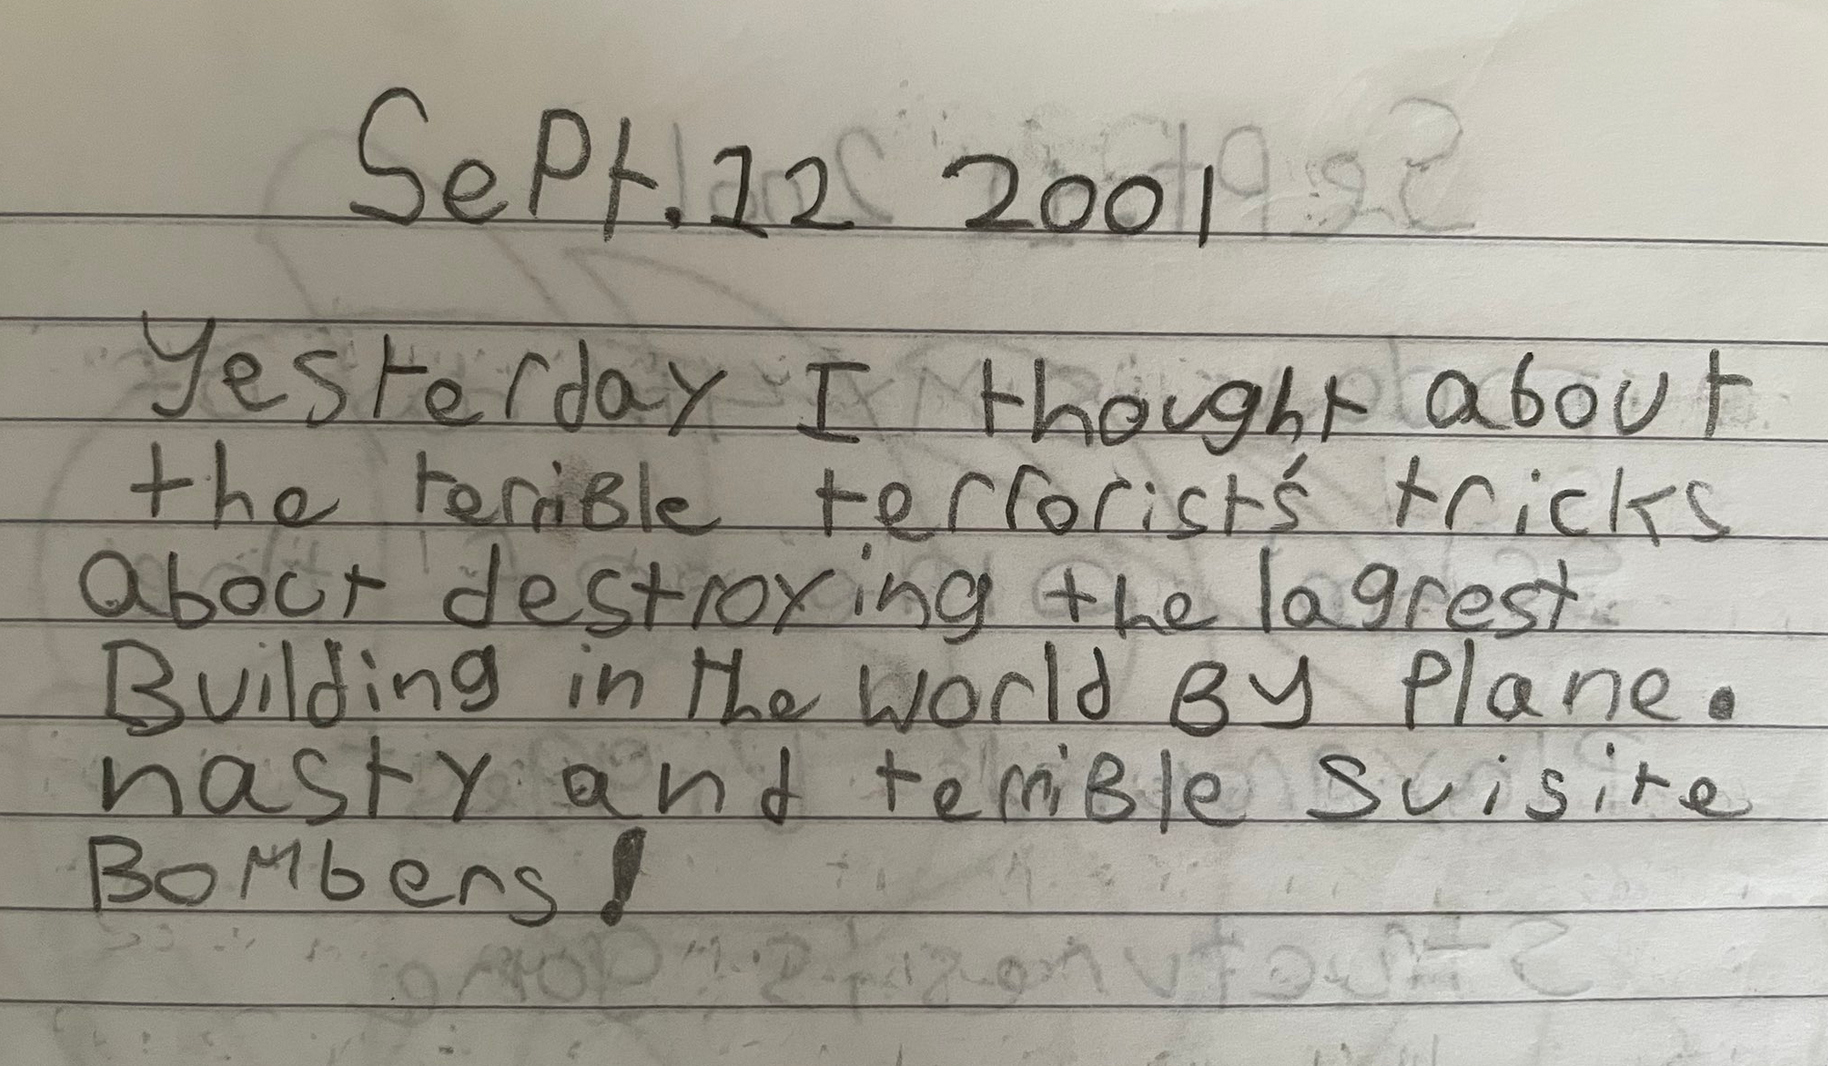 SePt. 12 2001
Yesterday I thought about
the terriBle terrorist's tricks
about destroying the lagrest
Building in the world By Plane.
nasty and terriBle suisite
BoMbers!